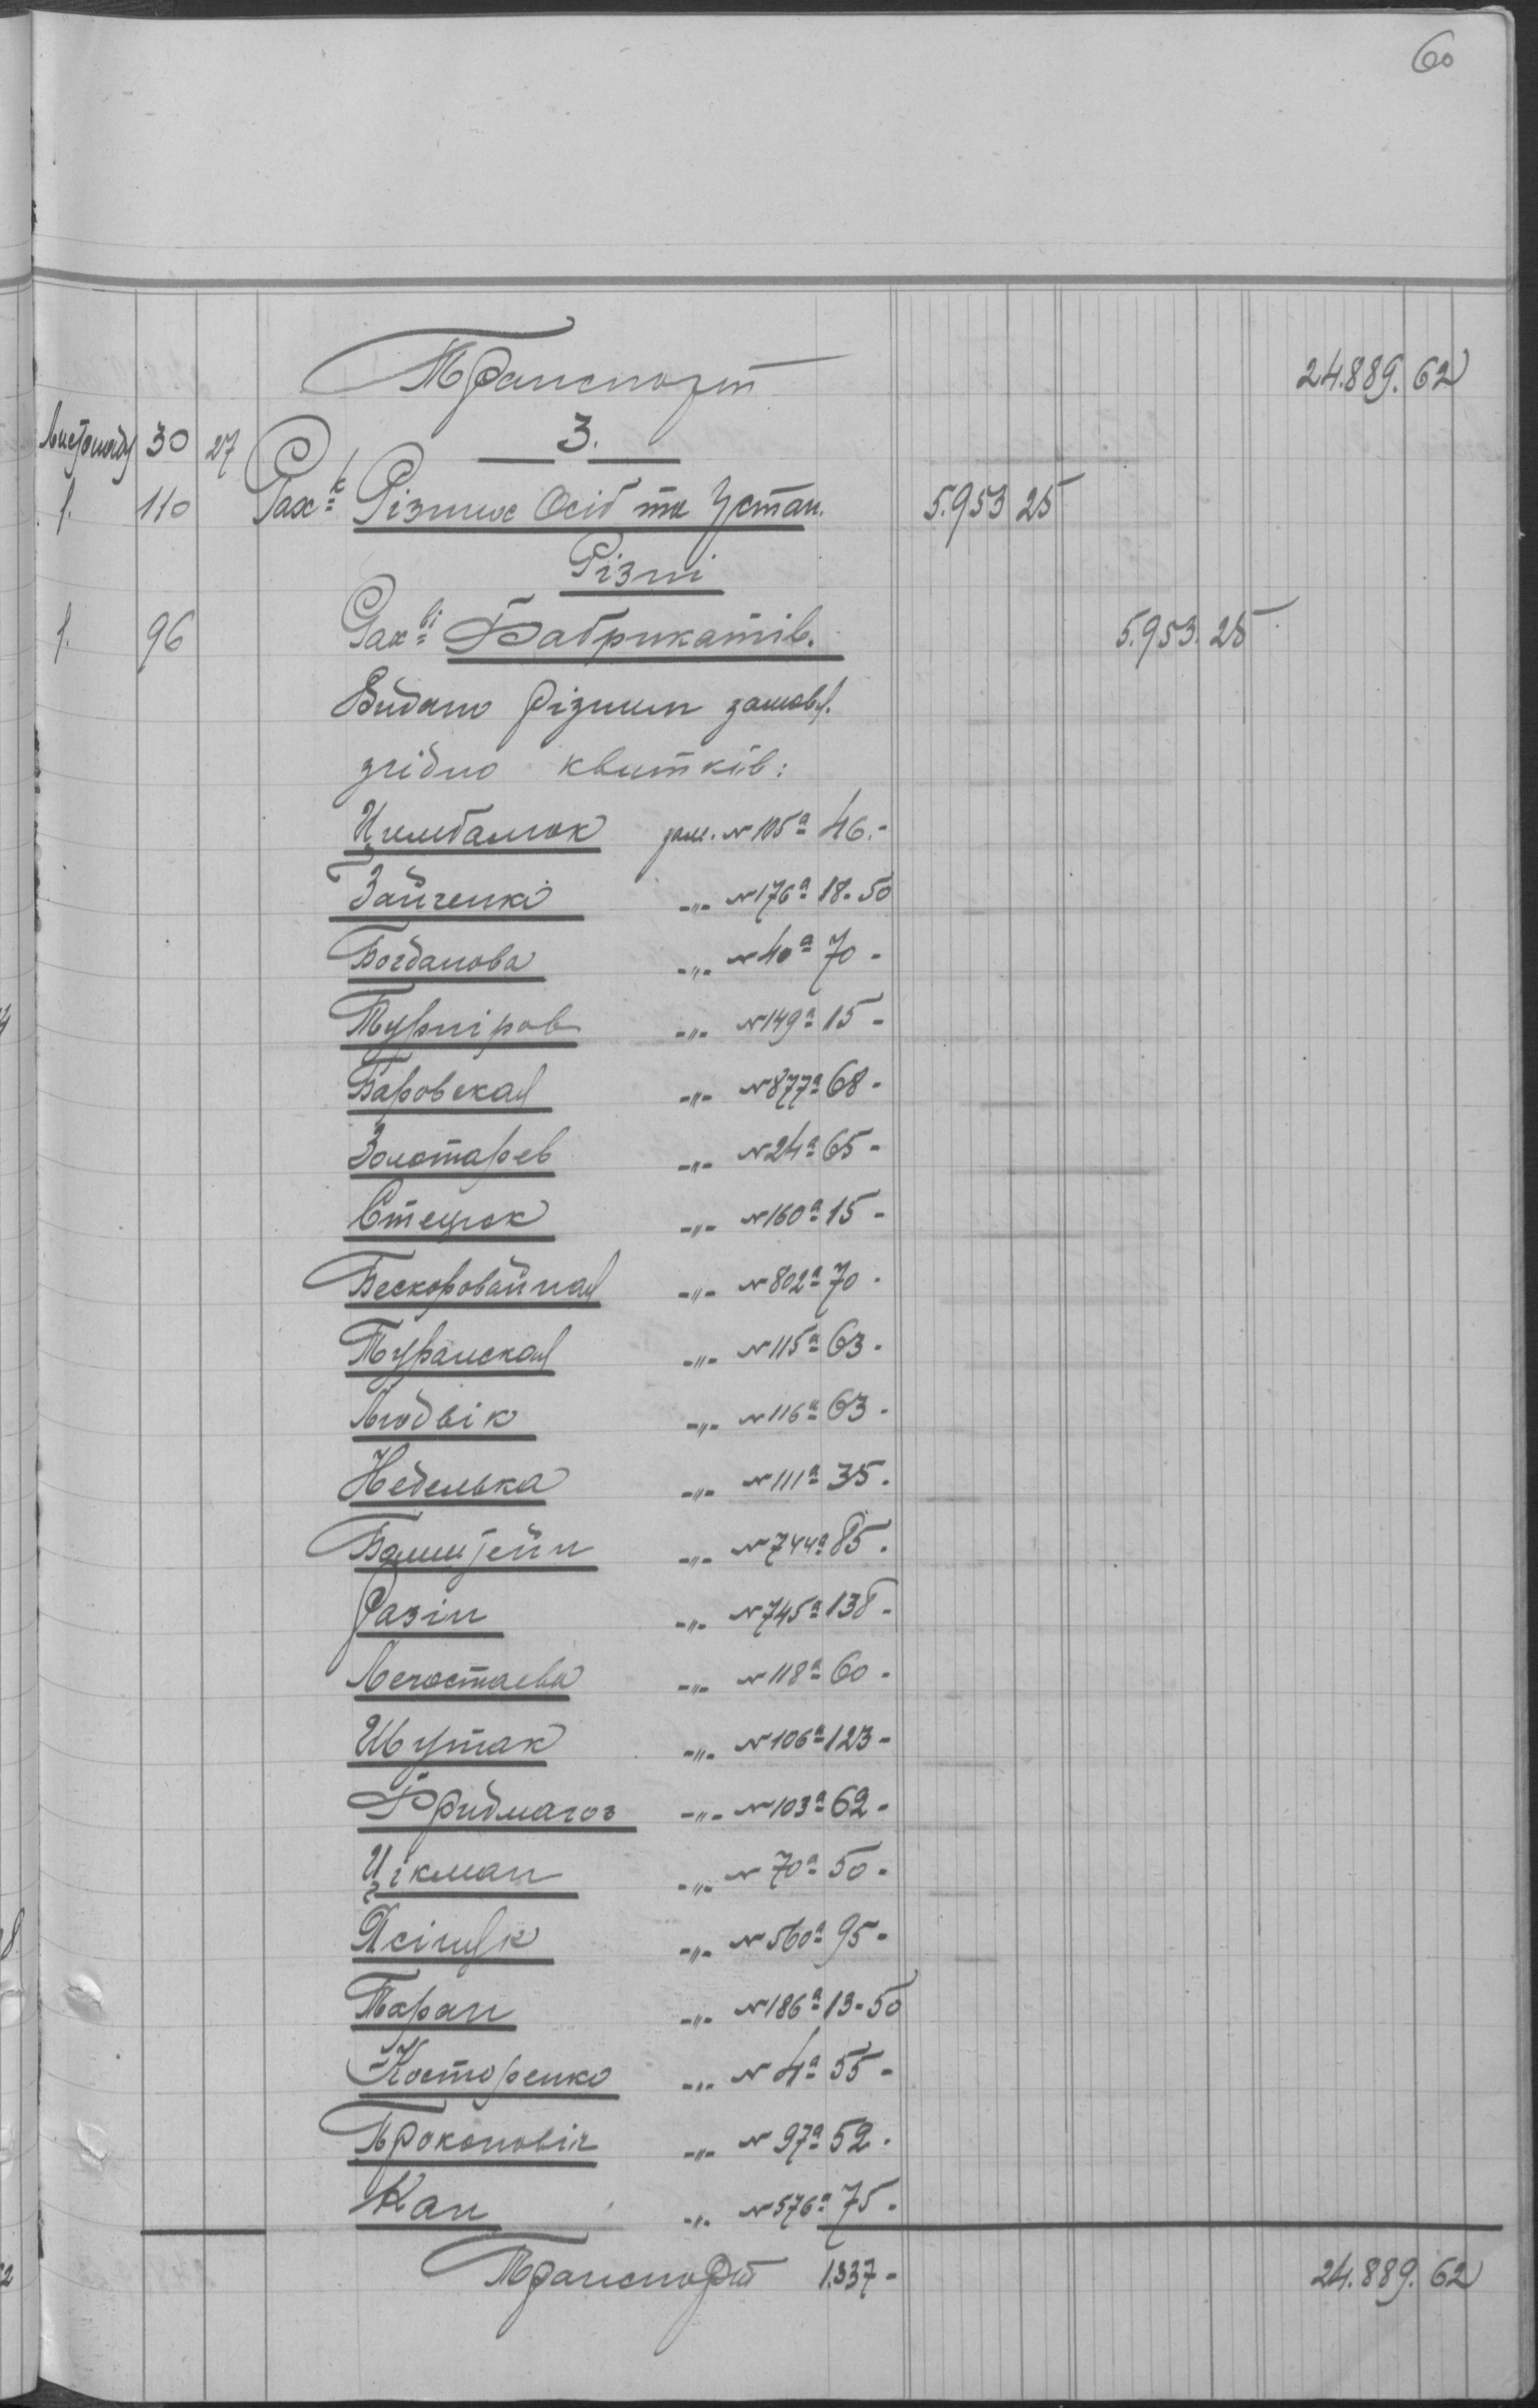 60
Транспорт 24.889.62
Листопад 30 27 3.
f. 110 Рах-к Різних Осіб та Устан. 5.953 25
Різні
f. 96 Рах-ві Фабрикатів. 5.953.25
Видано різним замовл.
згідно квитків:
Цимбалюк зам. № 105а 46.-
Зайченко -"- № 176а 18.50
Богданова -"- № 40а 70 -
Турніров -"- № 149а 15 -
Баровская -"- № 877а 68 -
Золотарев -"- № 24а 65 -
Стецюк -"- № 160а 15 -
Бескоровайная -"- № 802а 70 -
Туранская -"- № 115а 63 -
Людвік -"- № 116а 63 -
Неделька -"- № 111а 35 -
-"- № 744а 85 -
Разін -"- № 745а 138 -
Легостаева -"- № 118а 60 -
Шутак -"- № 106а 123 -
-"- № 103а 62 -
Цікман -"- № 70а 50 -
-"- № 560а 95 -
Таран -"- № 186а 13-50
Косторенко -"- № 4а 55 -
Проковіч -"- № 97а 52 -
Кан -"- № 576а 75 -
Транспорт 1.337 - 24.889.62